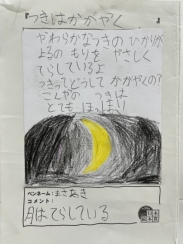 『つきはかがやく』
やわらかなつきの ひかりが
よるの もりを やさしく
てらしているよ
つきってどうして かがやくの?
こんやの つきは
とても
ペンネーム: まさあき
コメント:
月はてらしている